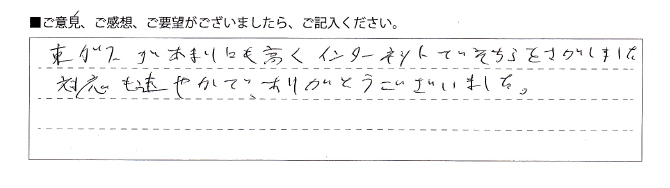 ■ご意見、ご感想、ご要望がございましたら、ご記入ください。
東ガスがあまりにも高くインターネットでそちらをさがしました
対応も速やかで、ありがとうございました。